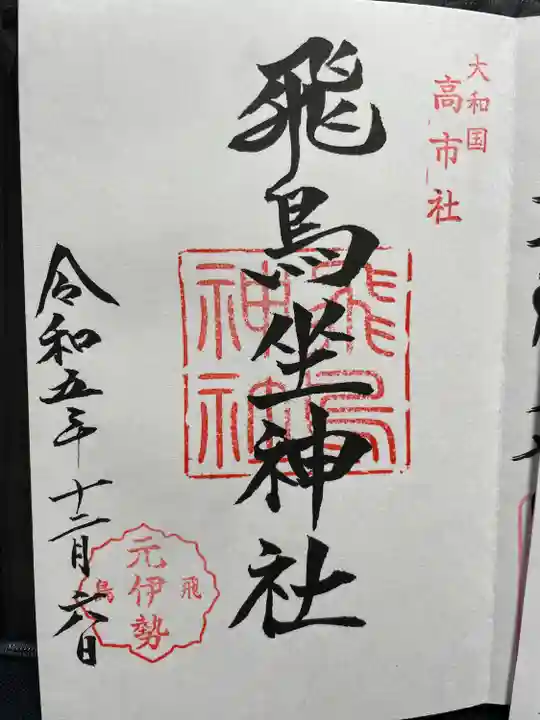 大和国
高市社
飛鳥坐神社
飛鳥
神社
飛鳥
元伊勢
令和五年十二月六日